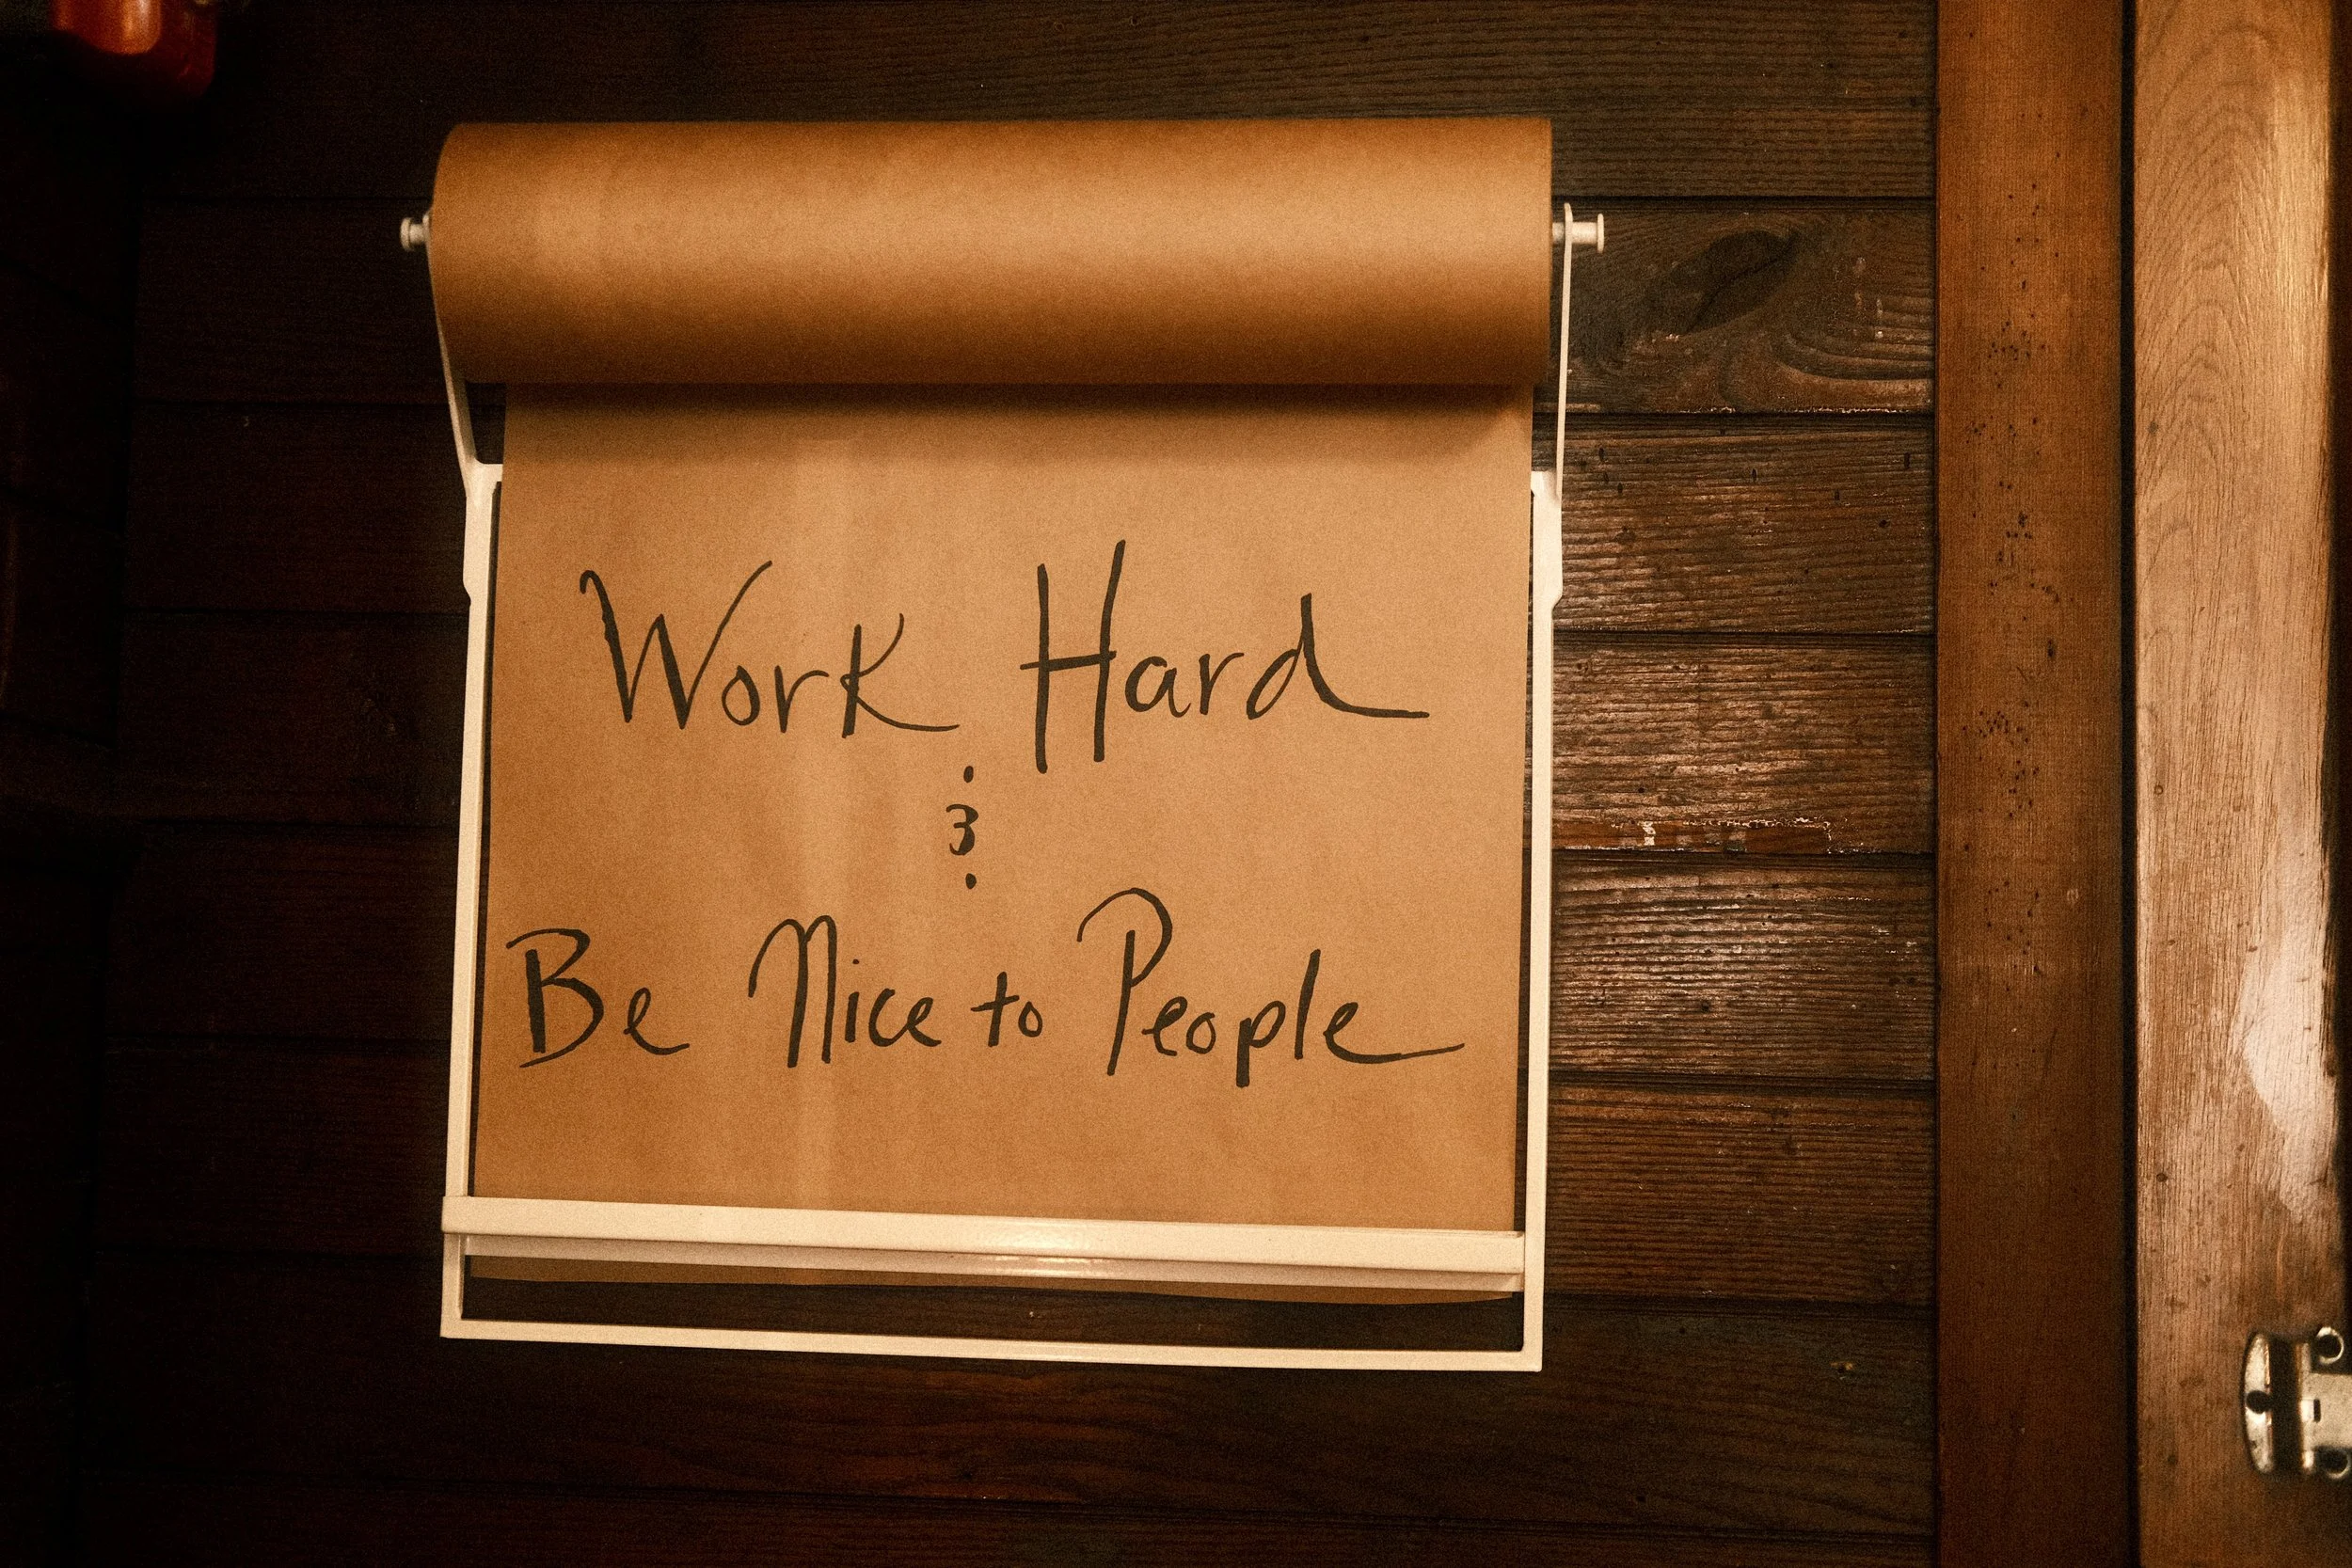 Work Hard
&
Be Nice to People